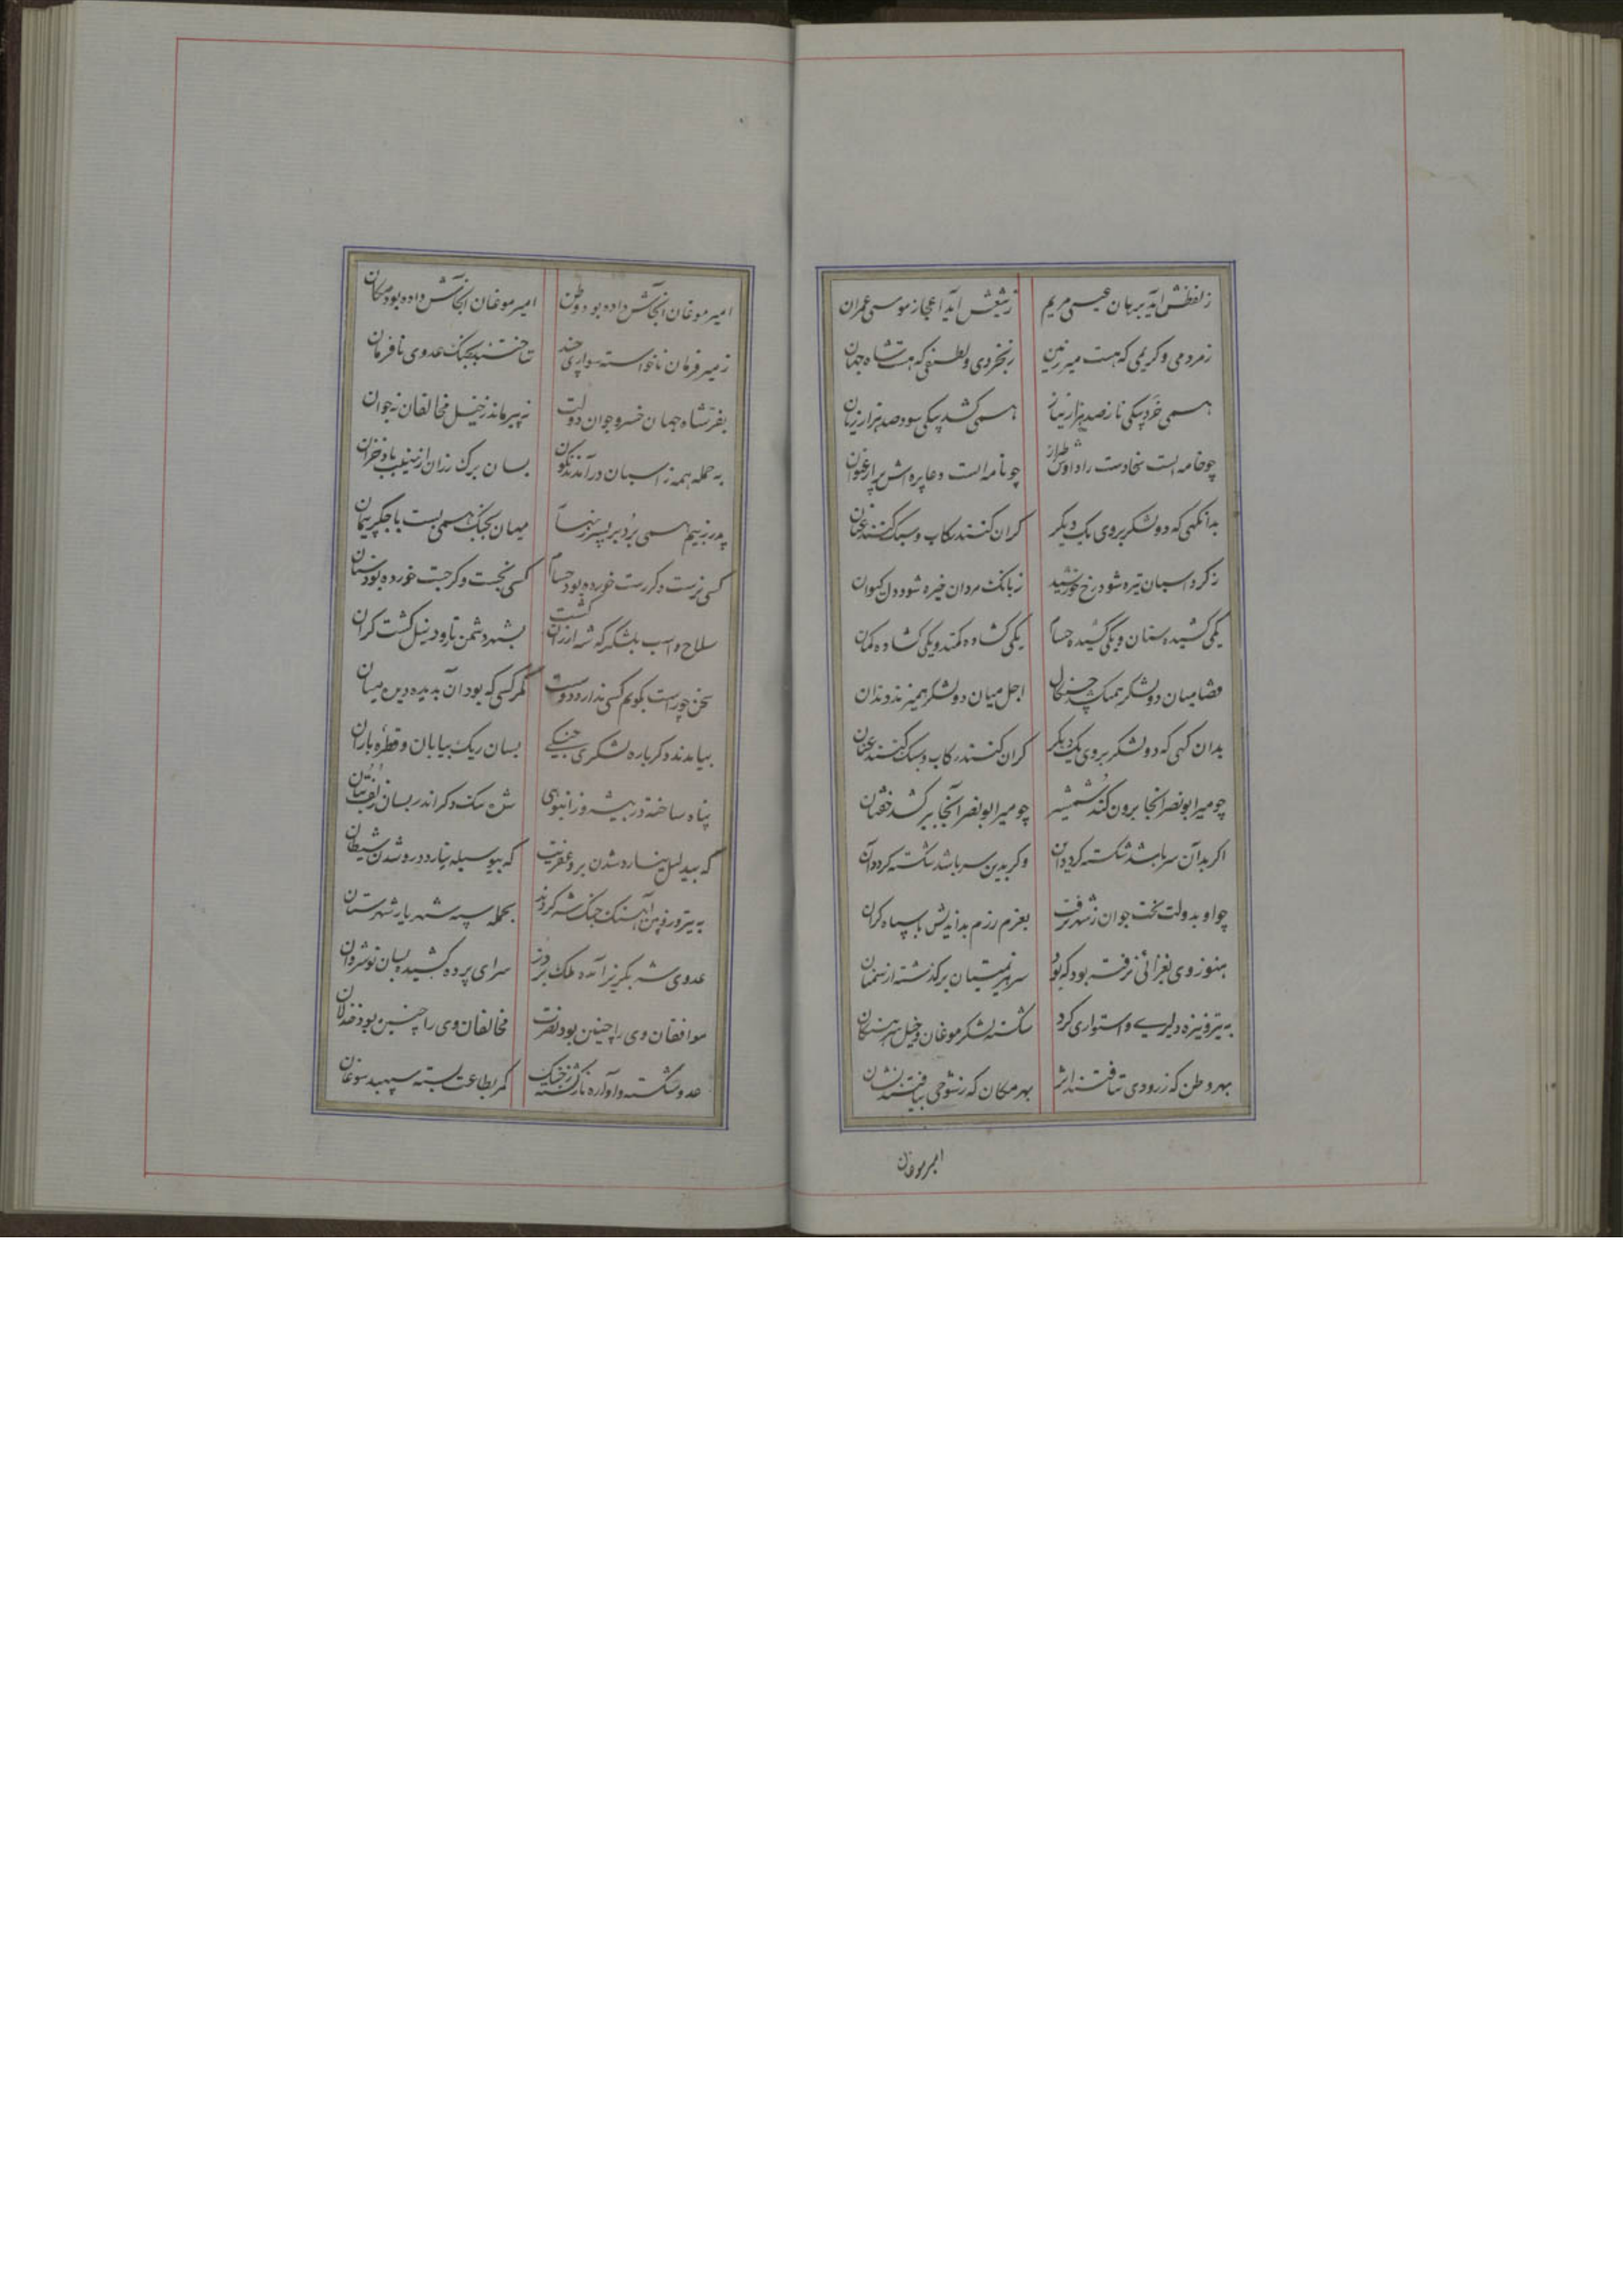 زلفظش آید برهان عیسی مریم زتیغش آید اعجاز موسی عمران
زمردمی و کریمی که هست میر زمین زبخردی و لطیفی که هست شاه جهان
همی خرد بیکی ناز صد هزار نیاز همی کشد بیکی سود صد هزار زیان
چو خامه است سخاوت را داوش طراز چو نامه است دعا پره اش بر ارغوان
بدانگهی که دو لشکر بروی یک دیگر گران کنند رکاب و سبک کنند عنان
زگرد اسبان تیره شود رخ خورشید زبانگ مردان خیره شود دل کیوان
یکی کشیده سنان و یکی کشیده حسام یکی گشاده کمند و یکی گشاده کمان
قضا میان دو لشکر همی کشد چنگال اجل میان دو لشکر همی زند دندان
بدان گهی که دو لشکر بروی یک دیگر گران کنند رکاب و سبک کنند عنان
چو میر ابونصر آنجا برون کند شمشیر چو میر ابونصر آنجا بر کشد خفتان
اگر بدآن سر باشد شکسته گردد این وگر بدین سر باشد شکسته گردد آن
چو او بدولت بخت جوان زشهر برفت بعزم رزم بداندیش با سپاه گران
هنوز وی بغزائی نرفته بود که بود سر هزیمتیان بر گذشته از سمنان
به تیر و نیزه دلیری و استواری کرد شکسته لشکر موغان و خیل سرهنگان
بهر وطن که زرودی تافتند اثر بهر مکان که زشوخی بیافتند نشان
امیر موغان
امیر موغان آنجاش داده بود وطن امیر موغان آنجاش داده بود مکان
زمیر فرمان ناخواسته سواری چند تاختند بجنگ عدوی نافرمان
بفر شاه جهان خسرو جوان دولت نه پیر ماند زخیل مخالفان نه جوان
به حمله همه زاسبان درآمدند نگون بسان برگ رزان از نهیب باد خزان
پدر زبیم همی برد بر پسر سنهآ میان بجنگ همی بست با جگر پیمان
کسی نرست وگر رست خورده بود حسام کسی نجست وگر جست خورده بود سنان
سلاح و اسب بلشکر که شه ارزان گشت بشهر دشمن تارود نیل گشت گران
سخن چو راست بگویم کسی ندارد دوست مگر کسی که بود آن بدیده دیده عیان
بیامدند دگر باره لشکری جنگی بسان ریگ بیابان و قطره باران
پناه ساخته در بیشه وز انبوهی شده یک دگر اندر بسان زلف بتان
که بیدلیل نیارد شدن برو عفریت که بیوسیله نیارد درو شدن شیطان
به تیر و زوپین آهنگ جنگ شه کردند بحمله سپه شهریار شهرستان
عدوی شه بگریز آمده ملک بر دز سرای پرده کشیده بسان نوشروان
موافقان وی را چنین بود نصرت مخالفان وی را چنین بود خذلان
عدو شکسته و آواره بازگشته زجنگ کمر بطاعت بسته سپهبد موغان